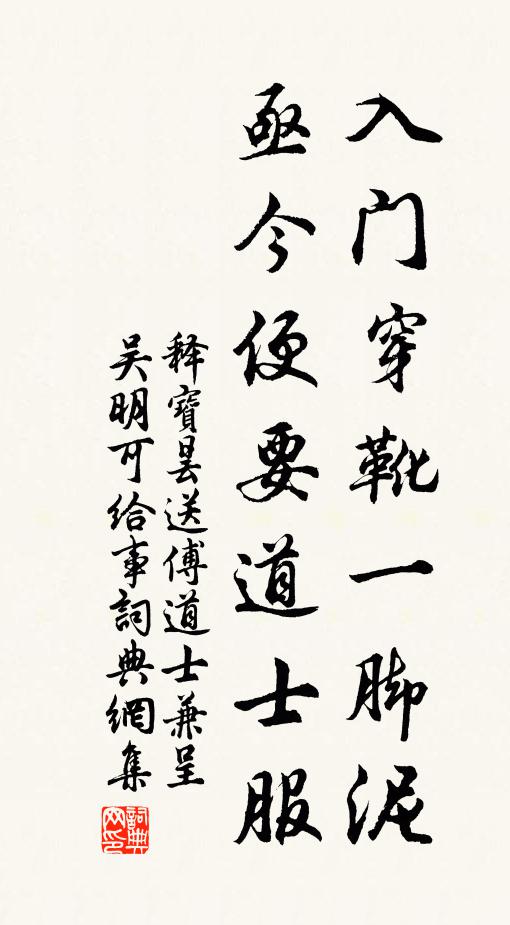 入门穿靴一脚泥
亟今便要道士服
释寶曇送傅道士兼呈
吴明可给事詞典網集
詞典网印